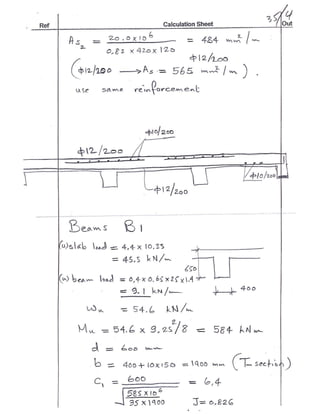 Ref Calculation Sheet 35/4 Out
As₂ = 20.0x10⁶ / 0.82 x 420 x 120 = 484 mm²/m
ϕ12/200
(ϕ12/200 → As = 565 mm²/m).
use same reinforcement
ϕ10/200
ϕ12/200
ϕ10/200
ϕ12/200
Beams B1
(u) slab load = 4,4 x 10.33
= 45.5 kN/m
650
(u) beam load = 0,4 x 0.65 x 25 x 1.4
= 9.1 kN/m
400
Wu = 54.6 kN/m
Mu = 54.6 x 9.25²/8 = 584 kNm
d = 600 mm
b = 400 + 10x150 = 1900 mm (T-section)
C₁ = 600 / √(585x10⁶ / 35 x 1900) = 6,4
J = 0,826